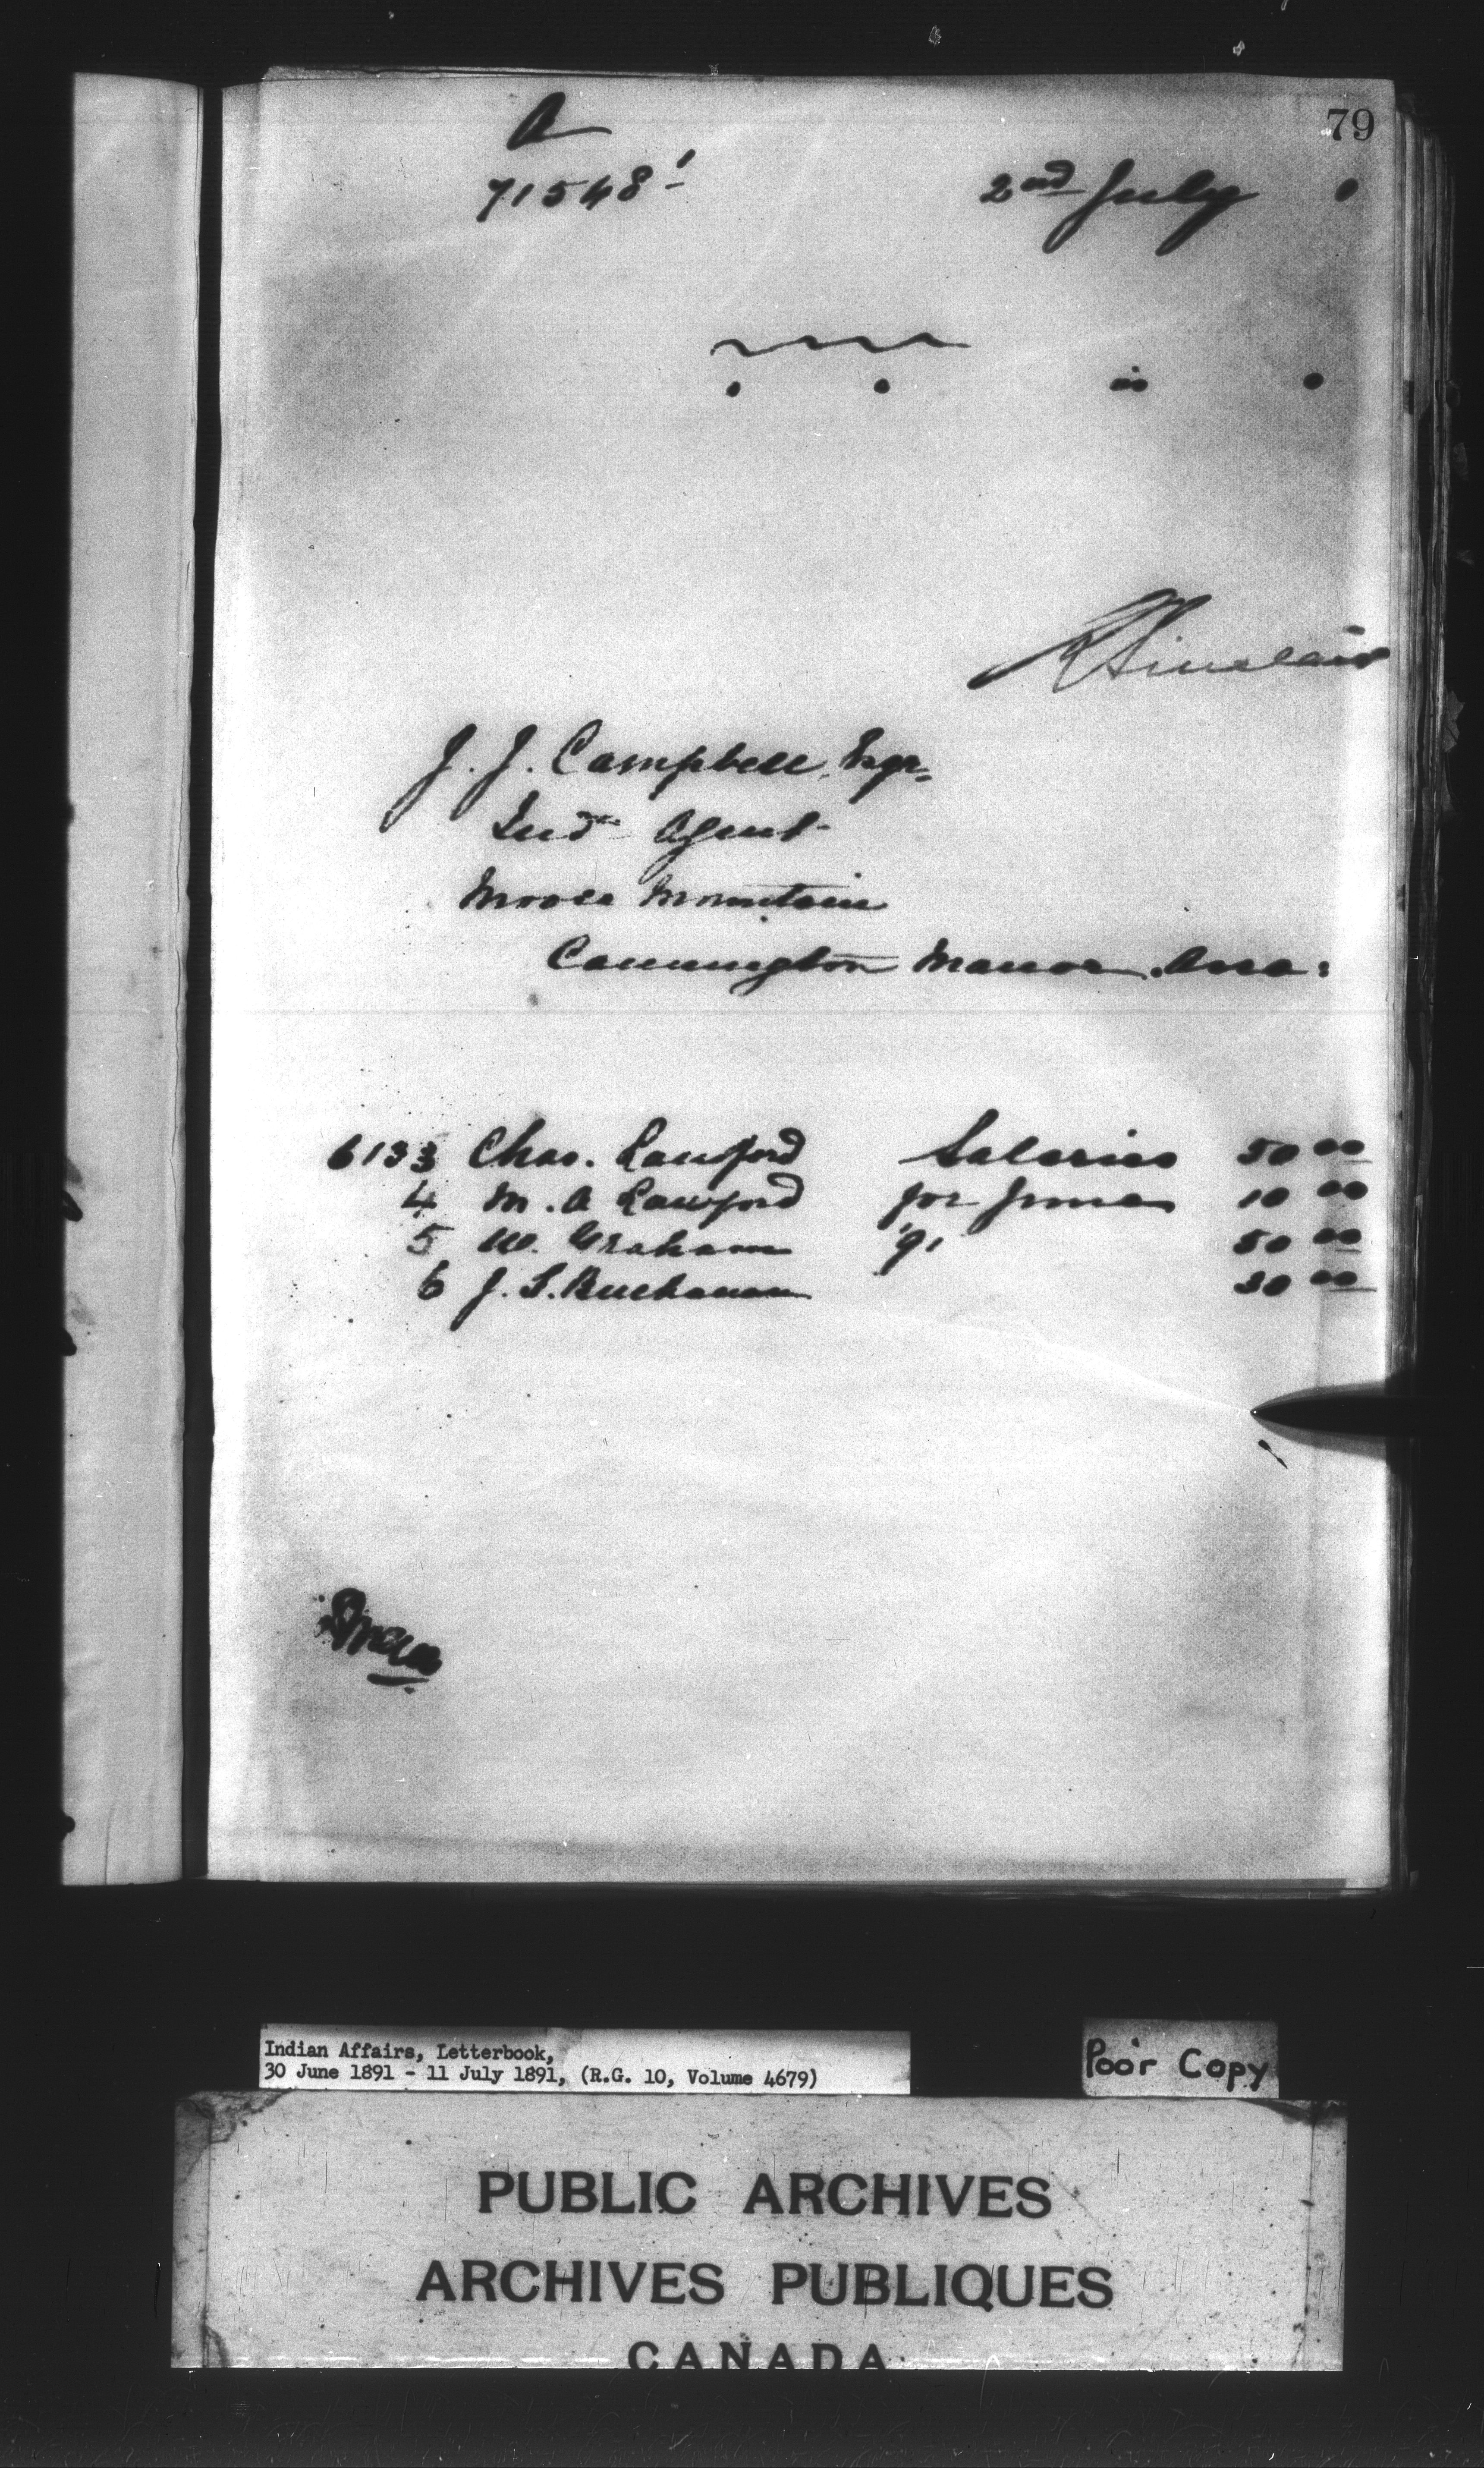 79
A
71548
2nd July
R Sinclair
J. J. Campbell, Esqr.
Indn Agent
Moose Mountain
Cannington Manor, Assa:
6133 Chas. Lawford Salaries 50 00
4 M. A Lawford for June 10 00
5 W. Graham 91 50 00
6 J. S. Buchanan 30 00
Indian Affairs, Letterbook,
30 June 1891 - 11 July 1891, (R.G. 10, Volume 4679)
Poor Copy
PUBLIC ARCHIVES
ARCHIVES PUBLIQUES
CANADA